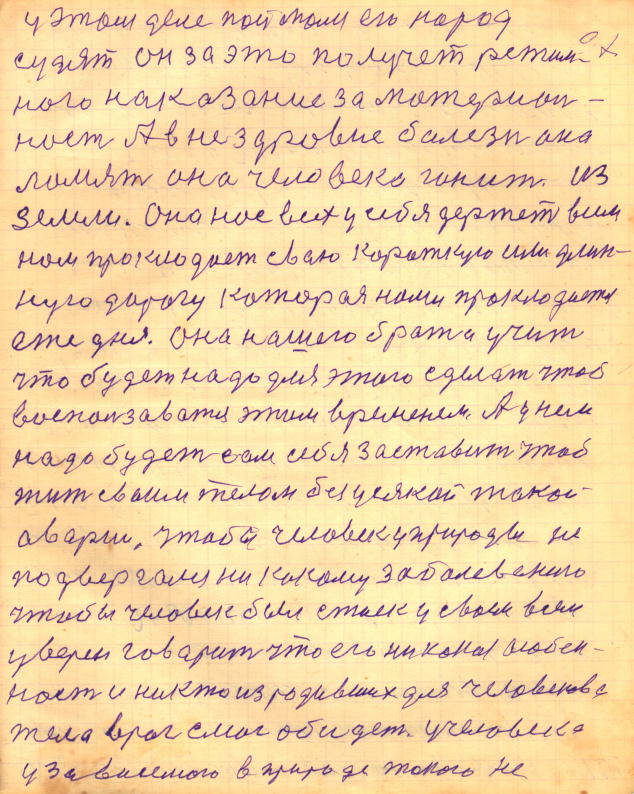 у этом деле поймали его народ
судят он за это получет режим-
ного наказание за материон-
ност А в не здровие болезн она
ломят она человека гонит. из
земли. Она нас всех у себя держет в ем
нам прокладает сваю кароткую или длин-
ную дорогу каторая нами прокладаетя
еже дня. Она нашего брата учит
что будет надо для этого сделат чтоб
воспользаватя этим временем А днем
надо будет сам себя заставит чтоб
жит своим телом без усякой такой
аварии, чтобы человек у природы не
подвергался никокому заболеванию
чтобы человек был стоек у своем всем
уверен говарит что его никокая особен-
ност и никто из родивших для человекова
тела враг смог обидет. у человека
у зависемого в природе такого не